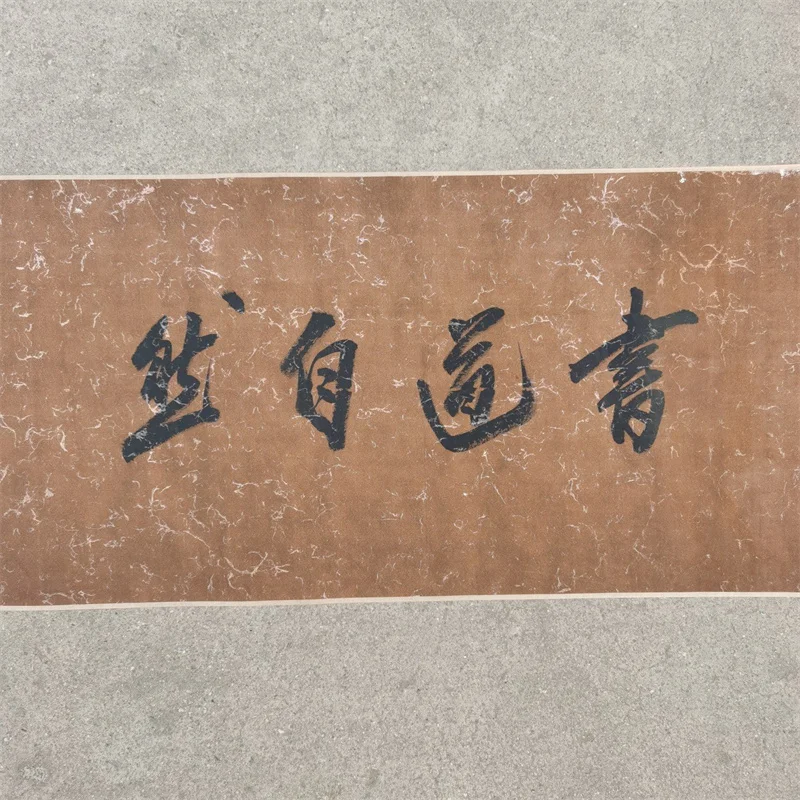 書道自然